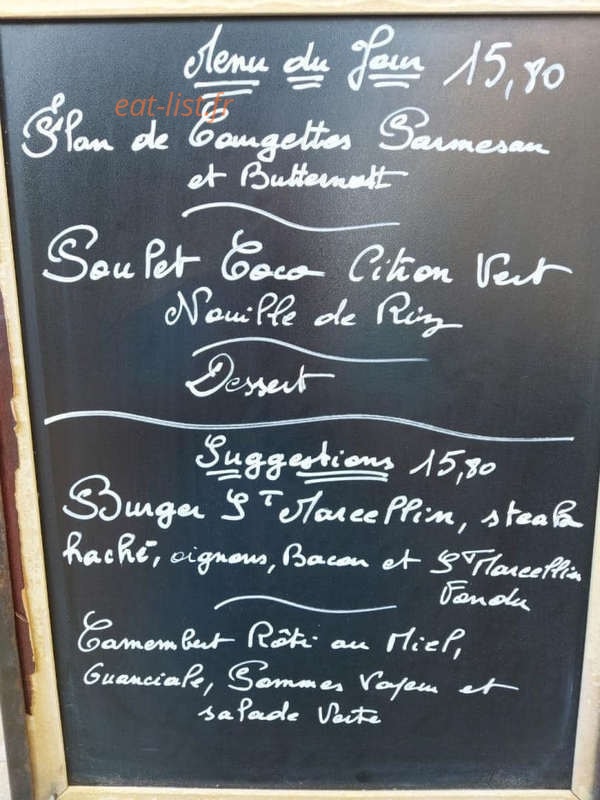 Menu du Jour 15,80
eat-list.fr
Flan de Courgettes Parmesan
et Butternutt
Poulet Coco Citron Vert
Nouille de Riz
Dessert
Suggestions 15,80
Burger St Marcellin, steak
haché, oignons, Bacon et St Marcellin
Fondu
Camembert Rôti au Miel,
Guanciale, Pommes Vapeur et
salade Verte